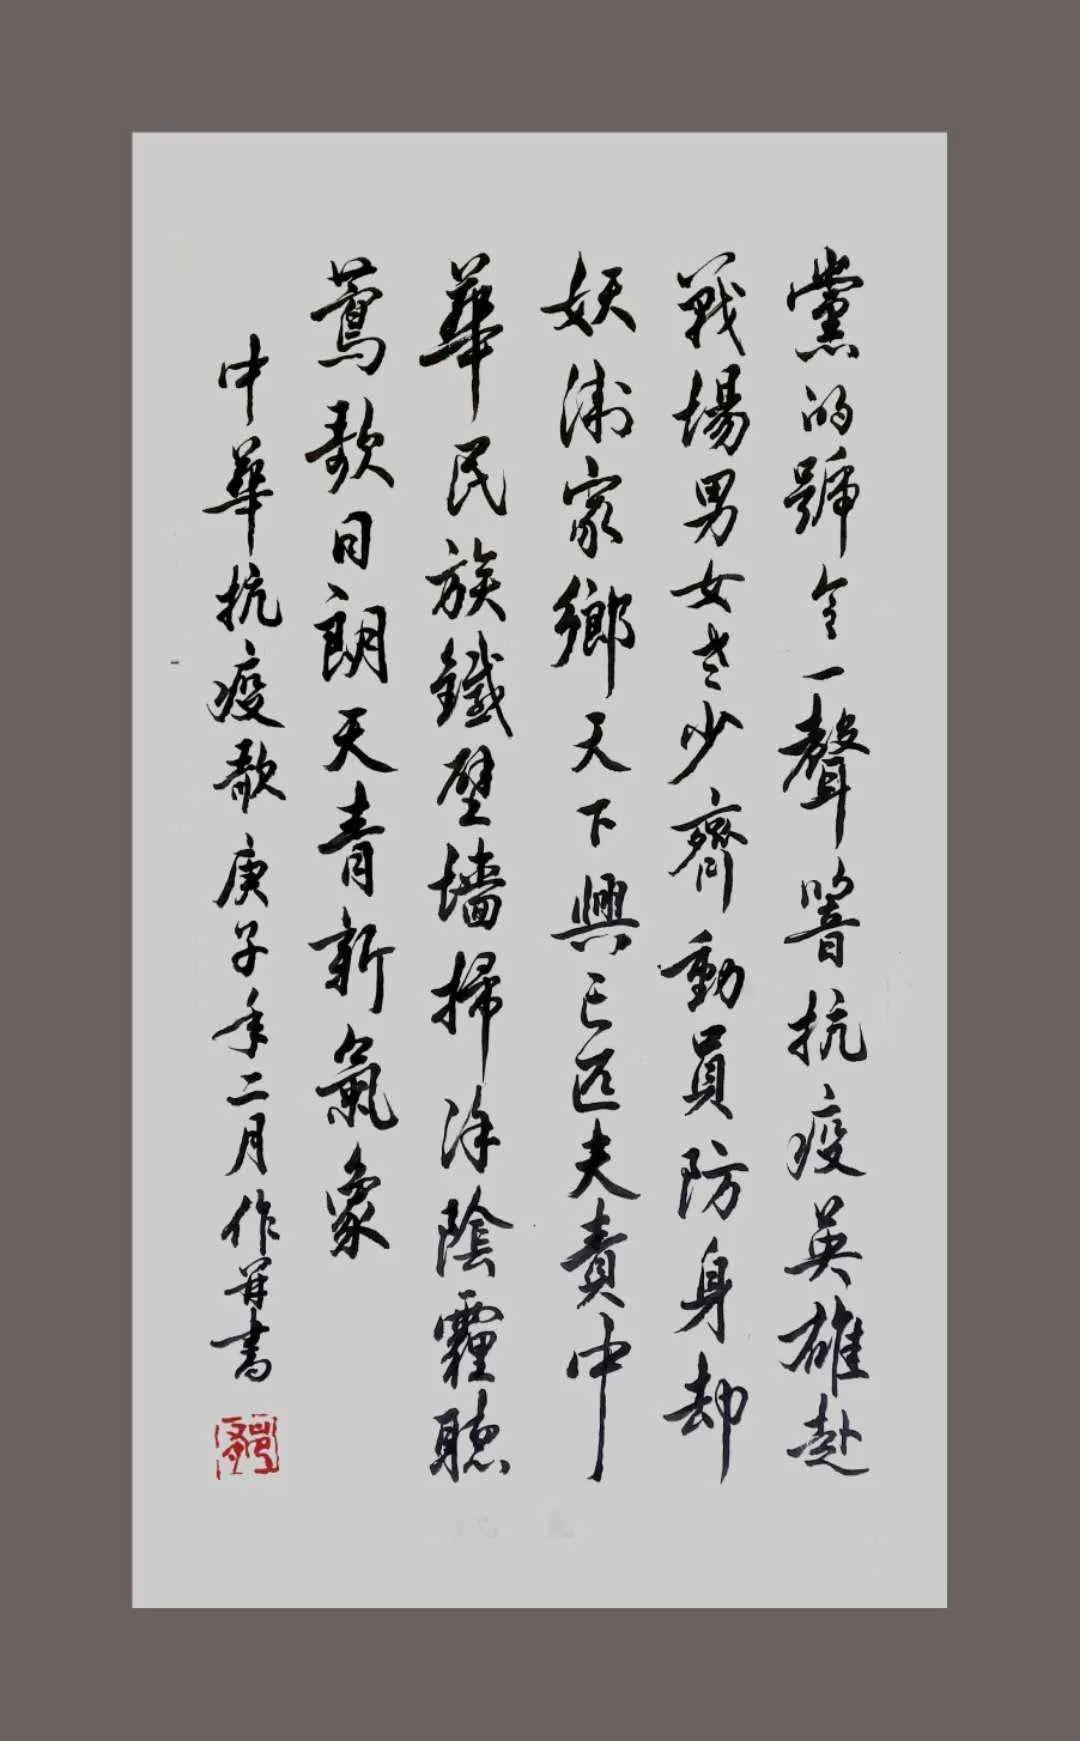 黨的號令一聲響抗疫英雄赴
戰場男女老少齊動員防身却
妖衛家鄉天下興亡匹夫責中
華民族鐵壁墻掃除陰霾聽
鶯歌日朗天青新氣象
中華抗疫歌庚子年二月作并書